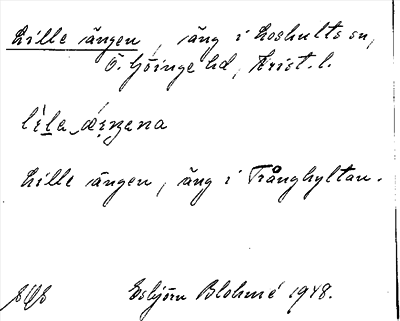 Lille ängen, äng i Loshults sn,
Ö. Göinge hd, Krist. l.
Lille ängen, äng i Trånghyltan.
Esbjörn Blohmé 1948.